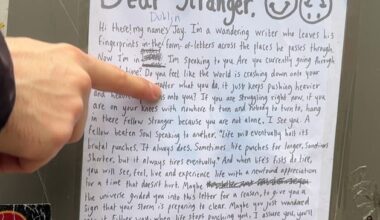 Dear Stranger,
Dublin
Hi there! my name's Jay. I'm a wandering writer who leaves his
fingerprints in the form of letters across the places he passes through.
Now I'm in I'm speaking to you Are you currently going through
time? Do you feel like the world is crashing down onto your
matter what you do, it just keeps pushing heavier
and you? If you are struggling right now, if you
are on your knees with nowhere to turn and nobody to turn to, hang
on there fellow Stranger because you are not alone, I see you. A
fellow beaten Soul speaking to another. "Life will eventually halt its
brutal punches. It always does. Sometimes, life punches for longer, sometimes
shorter, but it always tires eventually." And when life's fists do tire,
you will see, feel, live and experience life with a newfound appreciation
for a time that doesn't hurt. Maybe
the universe guided you into this letter for a reason, to give you a
sign that your storm is preparing to clear. Maybe you just wandered
when life stops punching you, I assure you, you'll